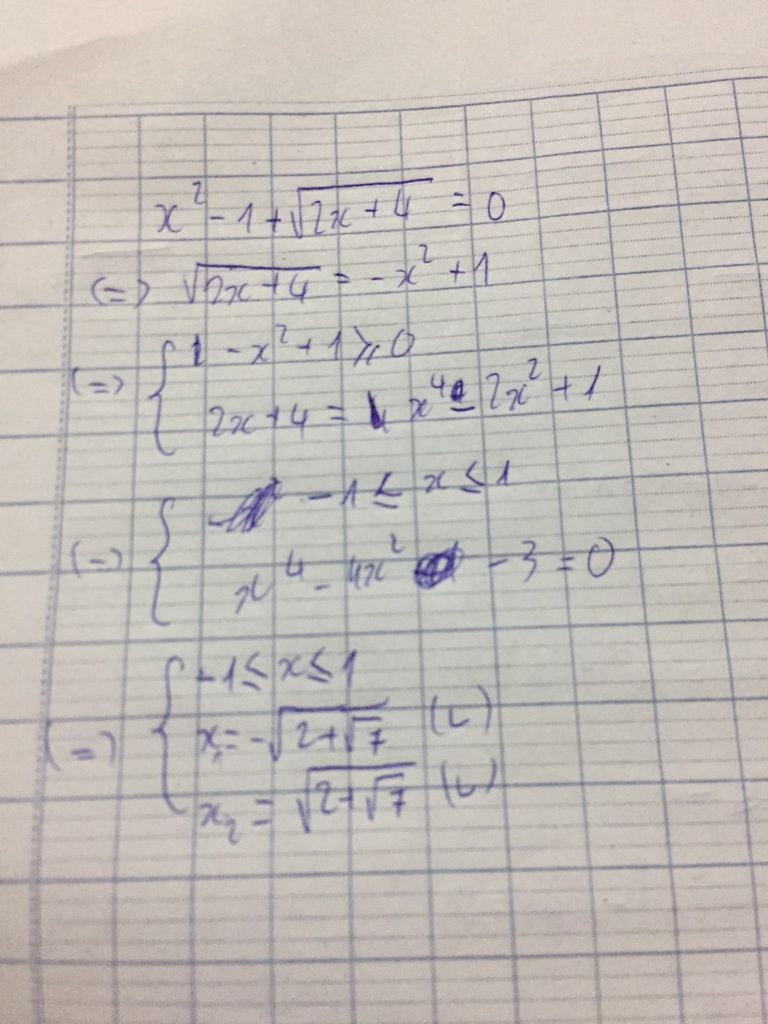 x² - 1 + √(2x + 4) = 0
(=) √(2x + 4) = -x² + 1
(=) { -x² + 1 ≥ 0
2x + 4 = x⁴ - 2x² + 1
(=) { -1 ≤ x ≤ 1
x⁴ - 4x² - 3 = 0
(=) { -1 ≤ x ≤ 1
x₁ = -√(2 + √7) (L)
x₂ = √(2 + √7) (L)